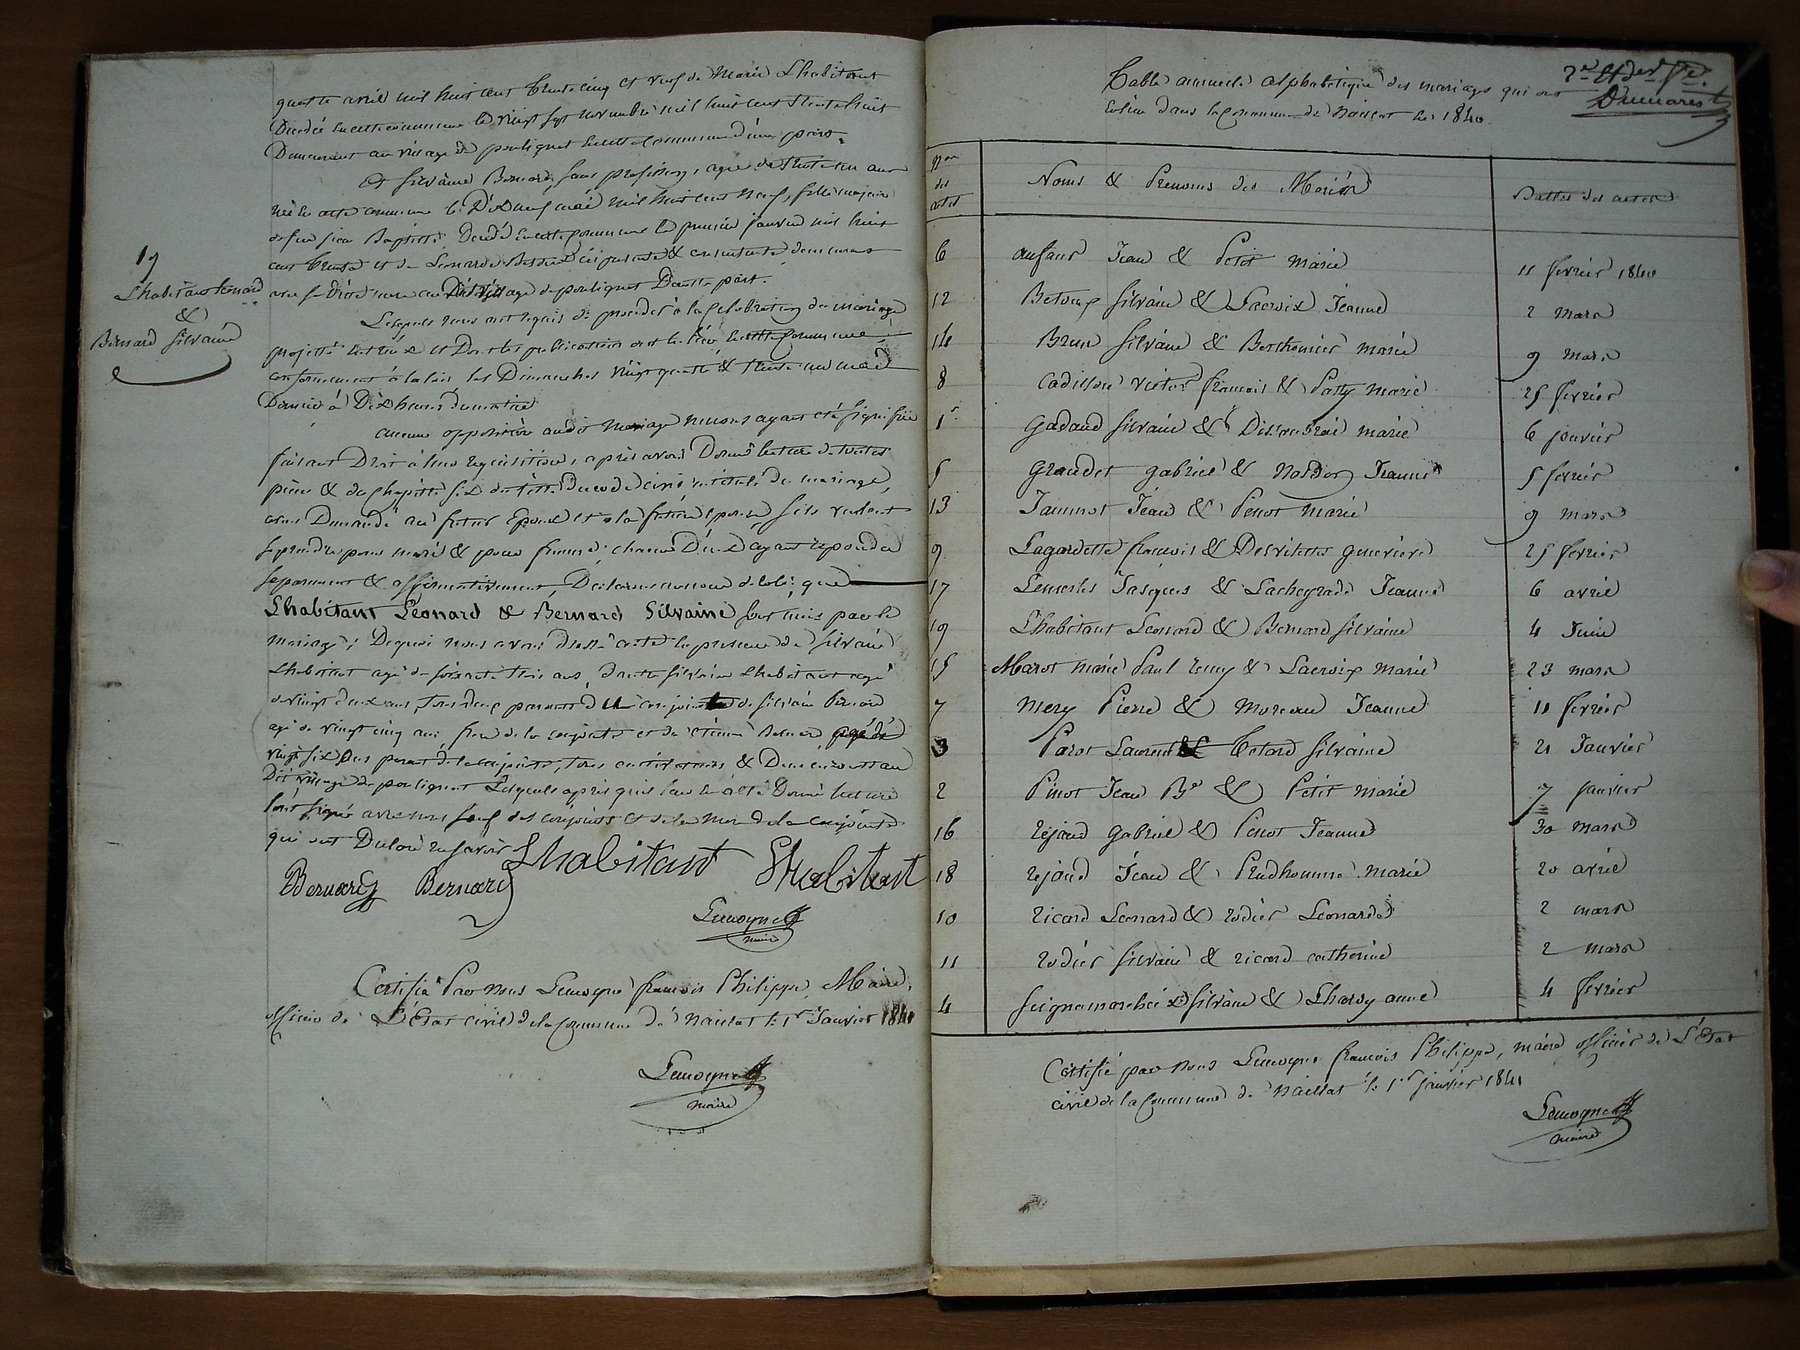 quatre avril mil huit cent trente cinq et veuf de Marie Lhabitant
Décédée en cette commune le vingt sept novembre mil huit cent trente huit
Demeurant au village de poulignat en cette commune d'une part.
Et Silvaine Bernard, sans profession, agée de trente un ans
née en cette commune le Dix neuf mai mil huit cent neuf, fille majeure
de feu Baptiste, Décédé en cette commune le premier janvier mil huit
cent trente et de Leonarde ici présente & consentante demeurant
avec sa dite mere au Dit village de poulignat D'autre part.
19
Lhabitant Léonard
&
Bernard Silvaine
Lesquels nous ont requis de procéder à la célébration du mariage
projetté entr'eux et Dont les publications ont été en cette commune
conformement à la loi les Dimanches vingt quatre & trente un mai
Dernier à Dix heures du matin
aucune opposition audit mariage ne nous ayant été signifiée
faisant Droit à leur requisition, après avoir Donné lecture de toutes
pièces & du chapitre six du titre du code civil intitulé du mariage,
avons Demandé au futur Epoux et a la future épouse s'ils veulent
se prendre pour mari & pour femme chacun D'eux ayant répondu
séparement & affirmativement, Déclarons au nom de la loi, que
Lhabitant Léonard & Bernard Silvaine sont unis par le
mariage; De quoi nous avons dressé acte en presence de Silvain
Lhabitant agé de soixante trois ans, d'autre Silvain Lhabitant agé
de vingt deux ans, tous deux parents du conjoint de Silvain Bernard
agé de vingt cinq ans frere de la conjointe et de étienne Bernard agé de
vingt six ans parent de la conjointe, tous cultivateurs & Demeurant au
Dit village de poulignat Lesquels après qu'il leur en a été Donné lecture
l'ont signé avec nous sauf des conjoints et de la mere de la conjointe
qui ont Déclaré ne savoir
Lhabitant Lhabitant
Bernard Bernard
Lemoyne
maire
Certifié Par nous Lemoyne françois Philippe, Maire,
officier de L'Etat civil de la Commune de Naillat le 1er Janvier 1841
Lemoyne
maire
2e et der fe.
Dumarest
Table annuelle alphabetique des mariages qui ont
Eu lieu dans la Commune de Naillat en 1840.
Nos des actes Noms & Prenoms des Mariés Dattes des actes
6 aufaur Jean & Petit Marie 11 fevrier 1840
12 Betoux Silvain & Lacroix Jeanne 2 mars
14 Brun Silvain & Berthomier marie 9 mars
8 Cadillon victor françois & Patty Marie 25 fevrier
1er Gadaud Silvain & marie 6 janvier
5 Graudet gabriel & Jeanne 5 fevrier
13 Jammot Jean & Penot Marie 9 mars
9 Lagardette françois & Desvilettes genevieve 25 fevrier
17 Jacques & Jeanne 6 avril
19 Lhabitant Leonard & Bernard Silvaine 4 Juin
15 Marot marie Paul remy & Lacroix Marie 23 mars
7 Mery Pierre & Moreau Jeanne 11 fevrier
3 Parot Laurent & Cotard Silvaine 21 Janvier
2 Pinot Jean Bte & Petit Marie 7 janvier
16 rejaud gabriel & Penot Jeanne 30 mars
18 rejaud Jean & Prudhomme marie 20 avril
10 ricard Leonard & rodier Leonarde 2 mars
11 rodier Silvain & ricard catherine 2 mars
4 Seignemarcheix Silvain & Lhardy anne 4 fevrier
Certifié par nous Lemoyne françois Philippe, maire officier de L'Etat
civil de la Commune de Naillat le 1er janvier 1841
Lemoyne
maire